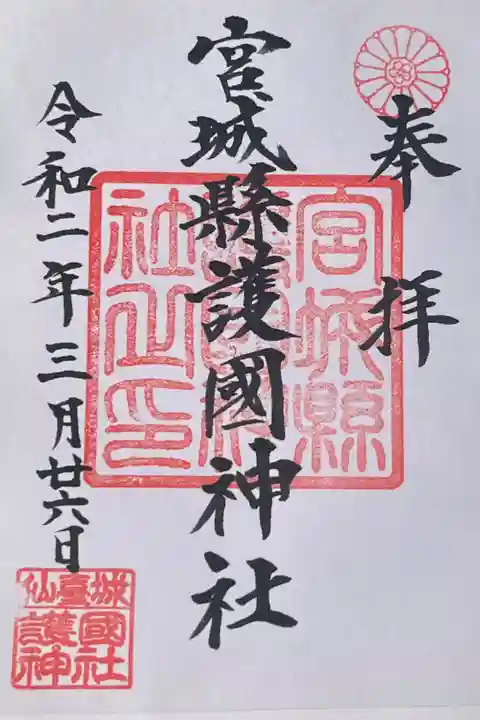 奉拝
宮城縣護國神社
令和二年三月廿六日
宮城縣
護國神
社之印
仙臺城
護國
神社